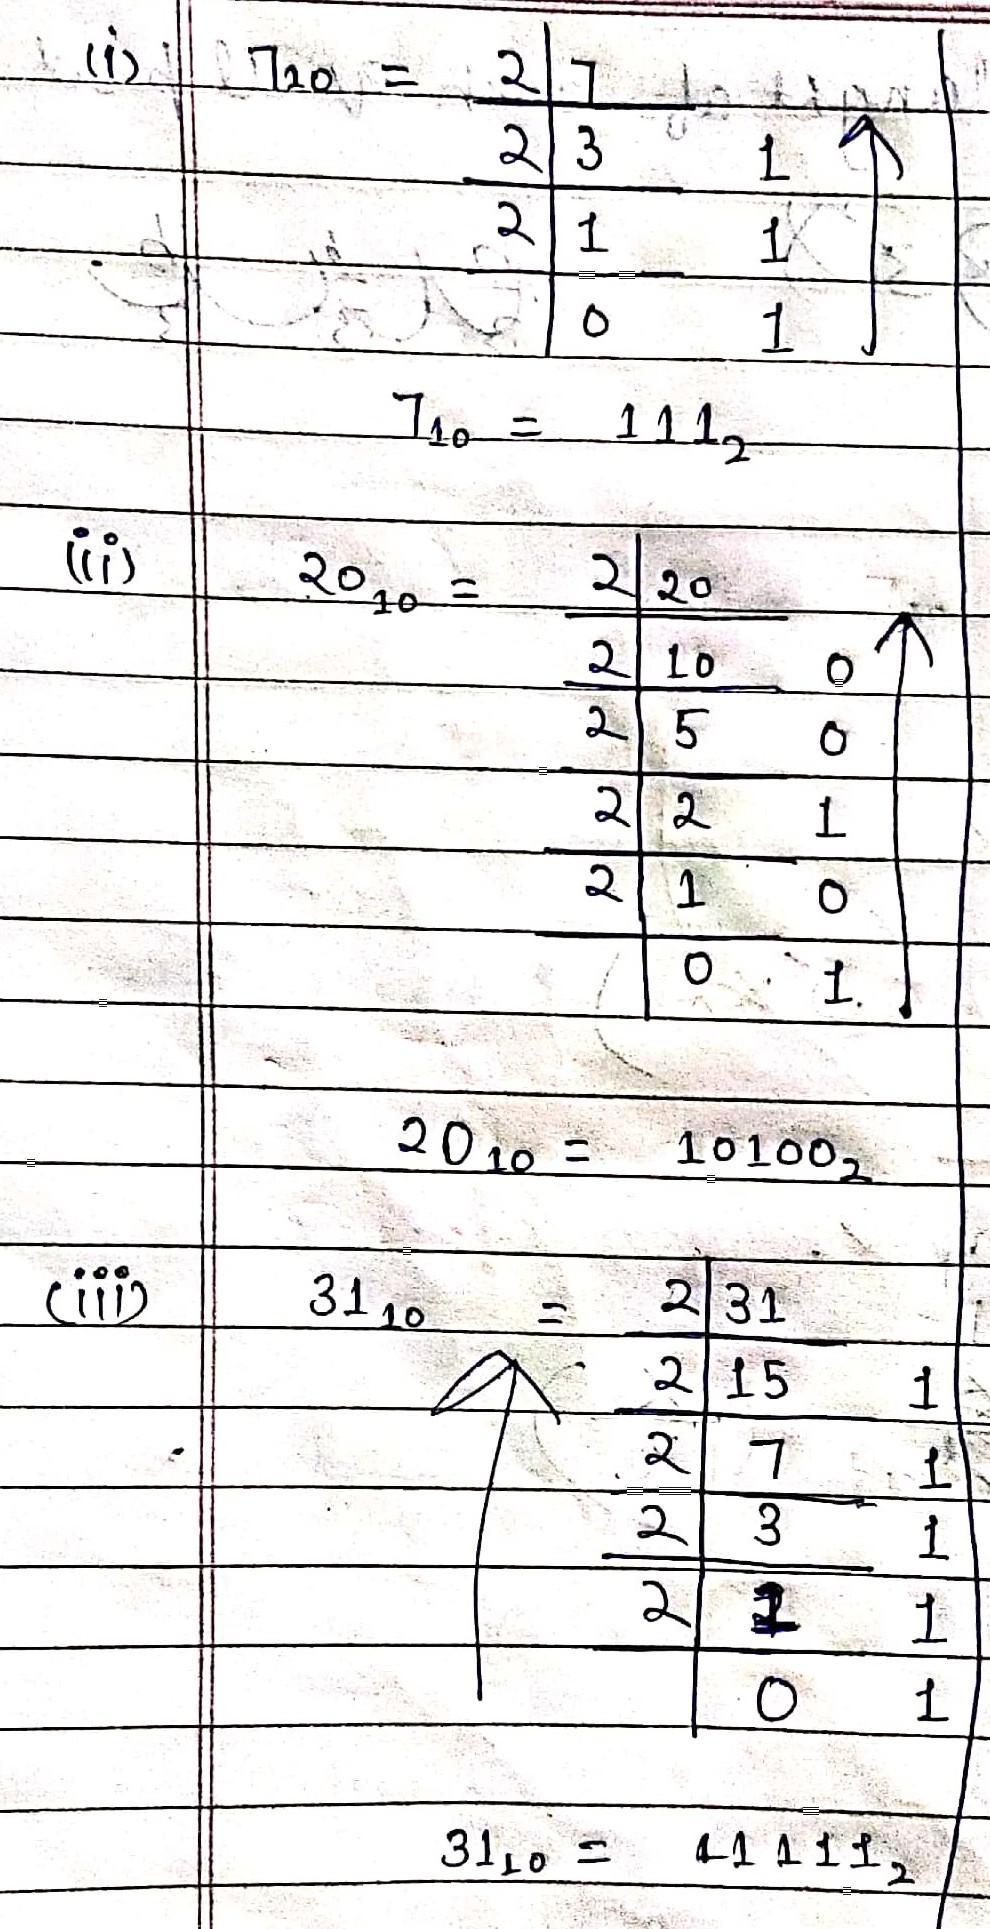 (i) 7₁₀ = 2 7
2 3 1
2 1 1
0 1
7₁₀ = 111₂
(ii) 20₁₀ = 2 20
2 10 0
2 5 0
2 2 1
2 1 0
0 1
20₁₀ = 10100₂
(iii) 31₁₀ = 2 31
2 15 1
2 7 1
2 3 1
2 1 1
0 1
31₁₀ = 11111₂